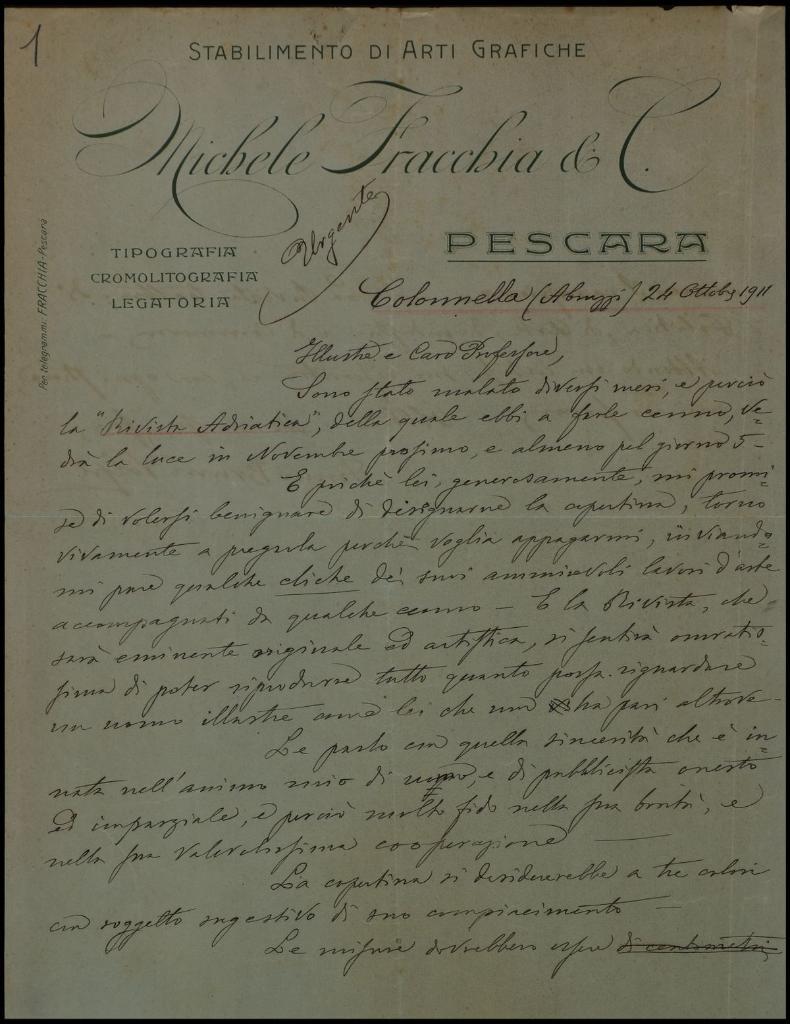 1
STABILIMENTO DI ARTI GRAFICHE
Michele Fracchia & C.
Urgente
PESCARA
TIPOGRAFIA
CROMOLITOGRAFIA
LEGATORIA
Per telegrammi: FRACCHIA-Pescara
Colonnella (Abruzzi) 24 Ottobre 1911
Illustre e Caro Professore,
Sono stato malato diversi mesi, e perciò
la "Rivista Adriatica", della quale ebbi a farle cenno, ve=
drà la luce in Novembre prossimo, e almeno pel giorno 5 –
E poichè lei, generosamente, mi promi=
se di volersi benignare di disegnarne la copertina, torno
vivamente a pregarla perchè voglia appagarmi, inviando=
mi pure qualche cliche dei suoi ammirevoli lavori d'arte
accompagnati da qualche cenno – E la Rivista, che
sarà eminente originale ed artistica, si sentirà onoratis=
sima di poter riprodurre tutto quanto possa riguardare
un uomo illustre come lei che non ha pari altrove –
Le parlo con quella sincerità che è in=
nata nell'animo mio di uomo, e di pubblicista onesto
ed imparziale, e perciò molto fido nella sua bontà, e
nella sua valevolissima cooperazione —
La copertina si desidererebbe a tre colori
con soggetto sugestivo di suo compiacimento —
Le misure dovrebbero essere di centimetri